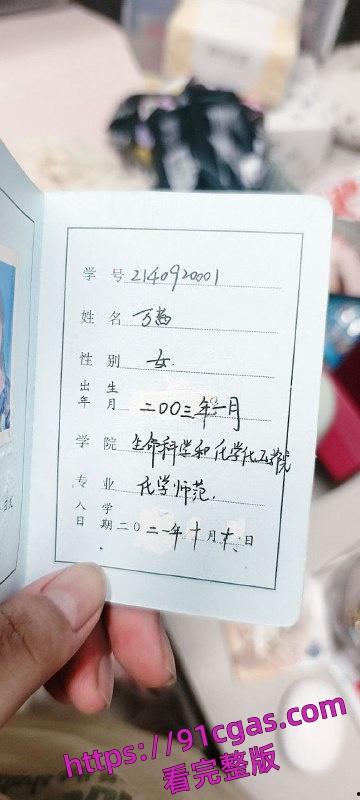 学 号 2140920001
姓 名 万
性 别 女
出 生
年 月 二00三年一月
学 院 生命科学和化学化工学院
专 业 化学师范.
入 学
日 期 二0二一年十月十 日
https://91cgas.com
看完整版